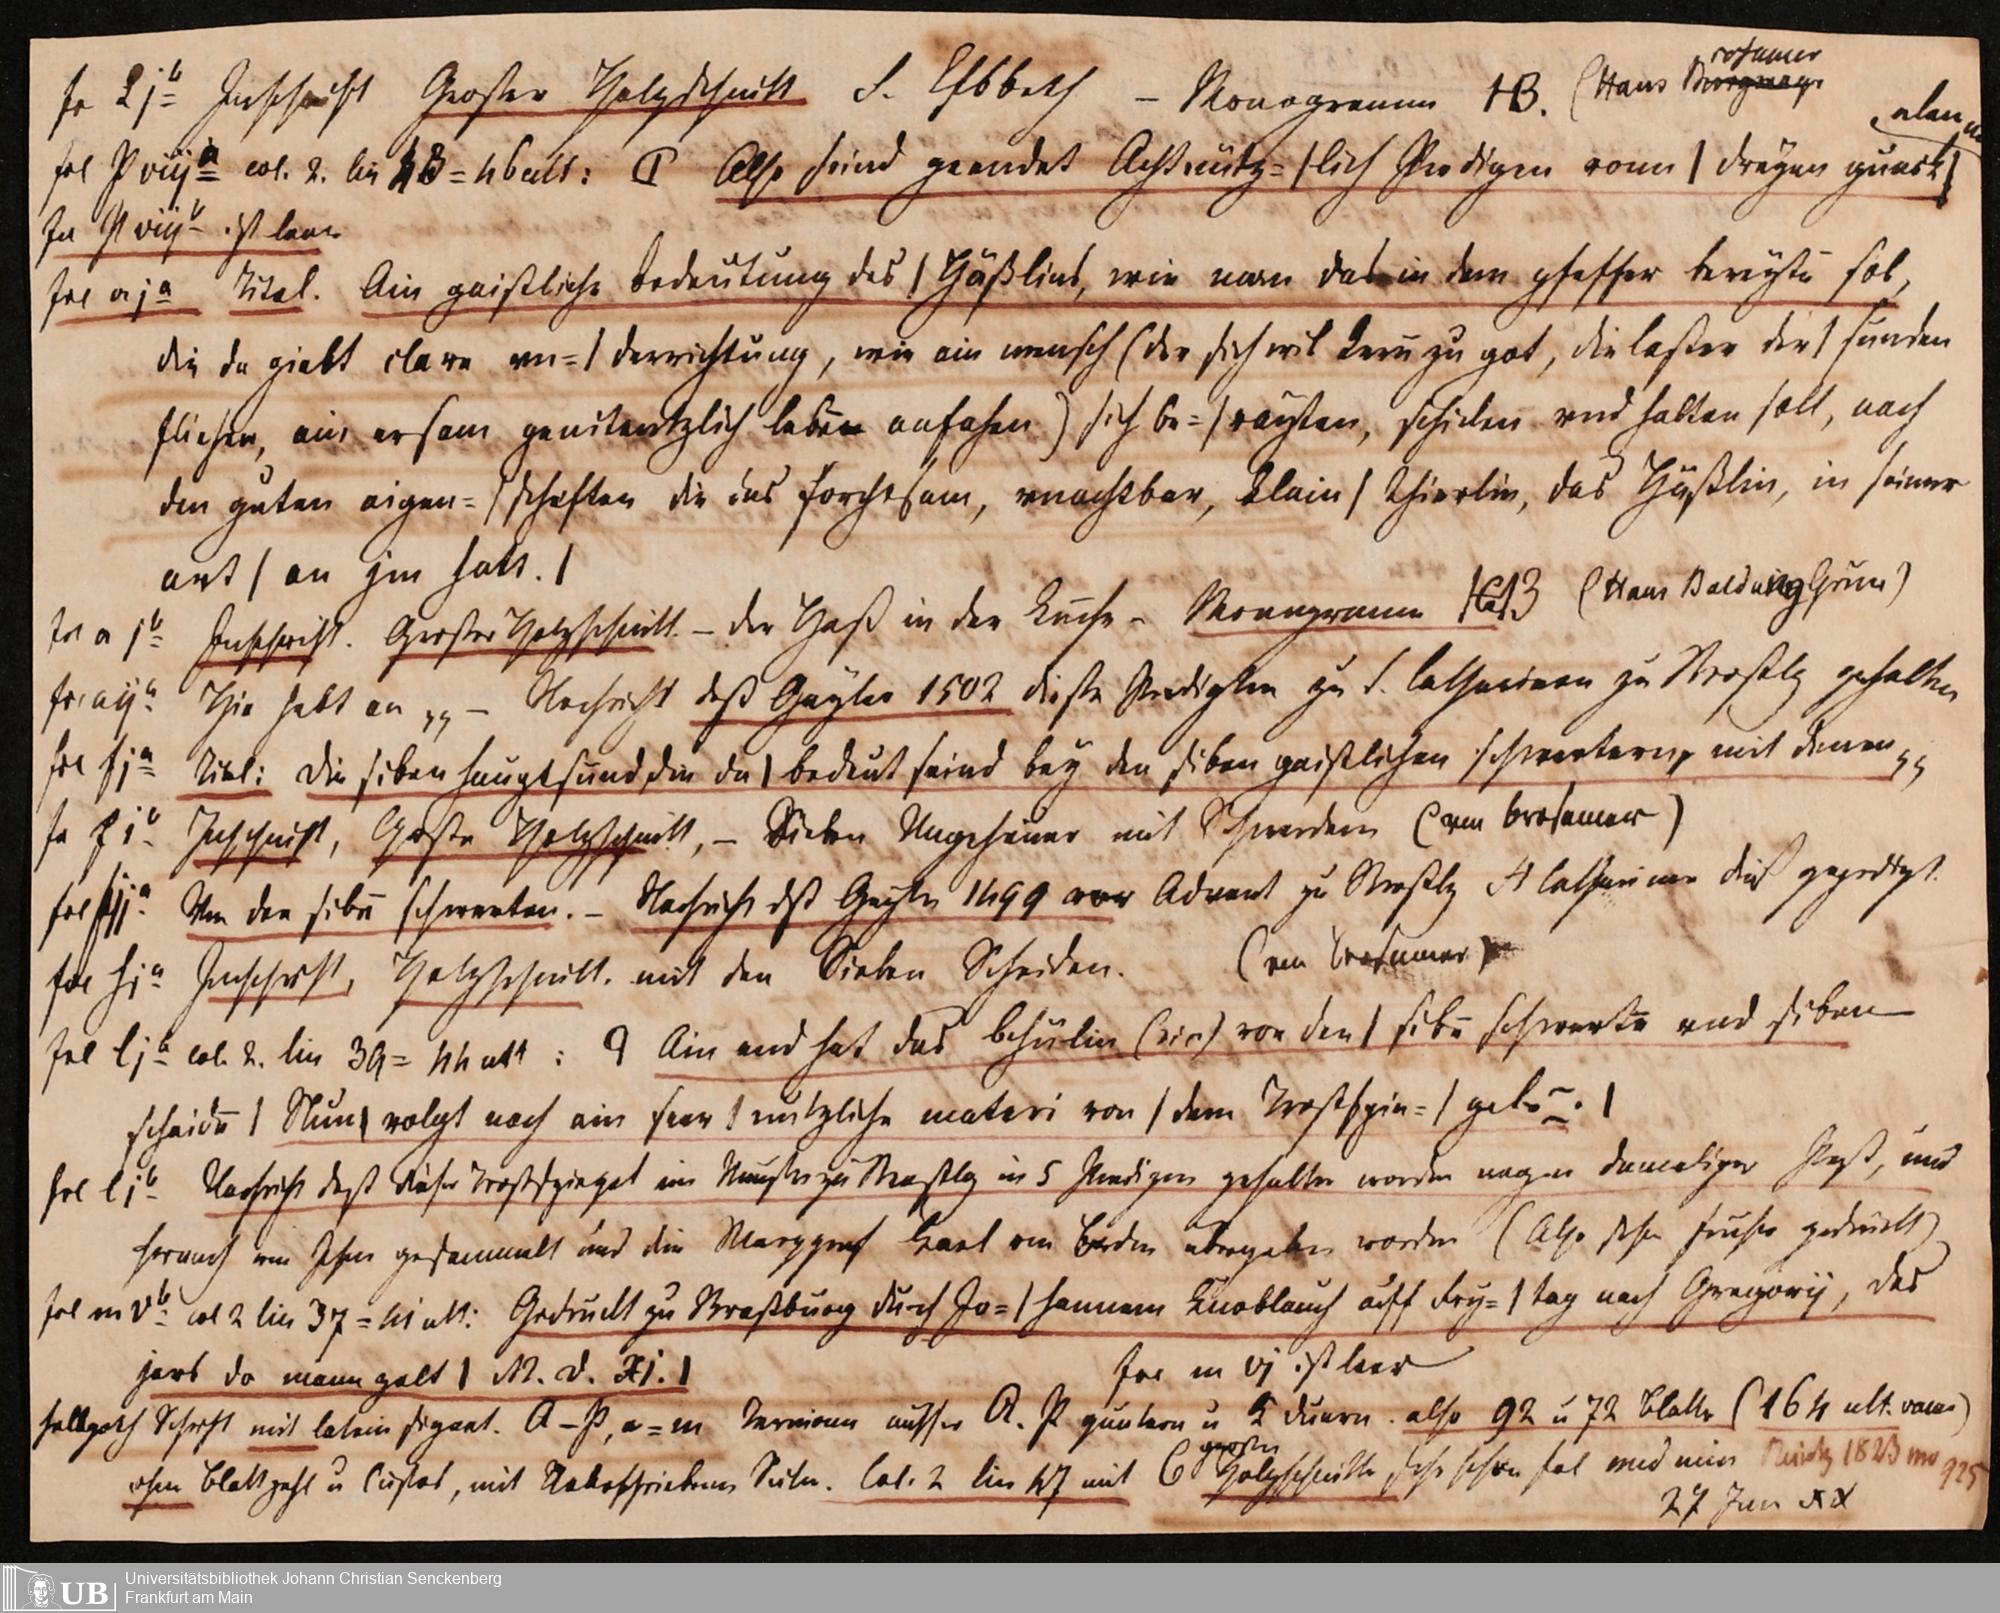 fo L jb Inschrift Grosser Holzschnitt S. Elsbeth – Monogramm HB. (Hans Burgmayr rosamer
fol P viija col. 2. lin 43 = 46 alt: Also seind geendet Achtnütz= | lich Predigen vonn | dreyen querk | alanus
fol P viijb ist leer
fol a ja Titel. Ain gaistliche bedeutung des | Häßlins, wie man das in dem pfeffer berayte sol,
die da giebt clare vn= | derrichtung, wie ain mensch (der sich wil kern zu got, die laster der | sunden
fliehen, ain ersam penitentzlich leben anfahen) sich be= | rayten, schicken vnd halten soll, nach
den guten aigen= | schaften die das forchtsam, vnachtbar, klain | thierlin, das Häßlin, in seiner
art | an jm hatt. |
fol a jb Inschrift. Grosser Holzschnitt. – der Haß in der Küche – Monogramm HB (Hans Baldung Grün)
fol a ija Hie hebt an – Nachricht daß Geyler 1502 diese Predigten zu S. Catharinen zu Straßbg gehalten
fol f ja Titel: Die siben hauptsünd, die da | bedeut seind bey den siben gaistlichen schwertern, mit denen
fo f jb Inschrift, Grosser Holzschnitt, – Sieben Ungeheuer mit Schwerdern (von brosamer)
fol f ija Von den sibē schwerten. – Nachricht daß Geyler 1499 vor Advent zu Straßbg St Catharinen dieß gepredigt.
fol h ja Inschrift, Holzschnitt. mit den Sieben Scheiden. (von brosamer)
fol l ja col. 2. lin 39 = 44 alt : Ain end hat das bchülin (sic) von den | sibē schwertē vnd siben
scheidē | Nun | volgt noch ain seer | nutzliche materi von | dem Trostspie= | gel. |
fol l jb Nachricht daß dieser Trostspiegel im Münster zu Straßbg in 5 Predigen gehalten worden wegen damaliger Pest, und
hernach von Ihm gesammelt und dem Marggraf Karl von Baden übergeben worden (Also schon früher gedruckt)
fol m vb col 2 lin 37 = 41 alt: Gedruckt zu Straßburg durch Jo= | hannem Knoblauch auff Fry= | tag nach Gregorij, des
jars do mann zalt | M. D. XI. | fol m vj ist leer
halbgoth Schrift mit latein signat. A – P, a = m Ternionen ausser A. P quatern u L duern. also 92 u 72 Blatt (164 alt. vacuo)
ohne Blattzahl u Custos, mit Ueberschriebenen Seiten. Col. 2 lin 47 mit 6 großen Holzschnitten,
27 Jun XX
Universitätsbibliothek Johann Christian Senckenberg
Frankfurt am Main
UB